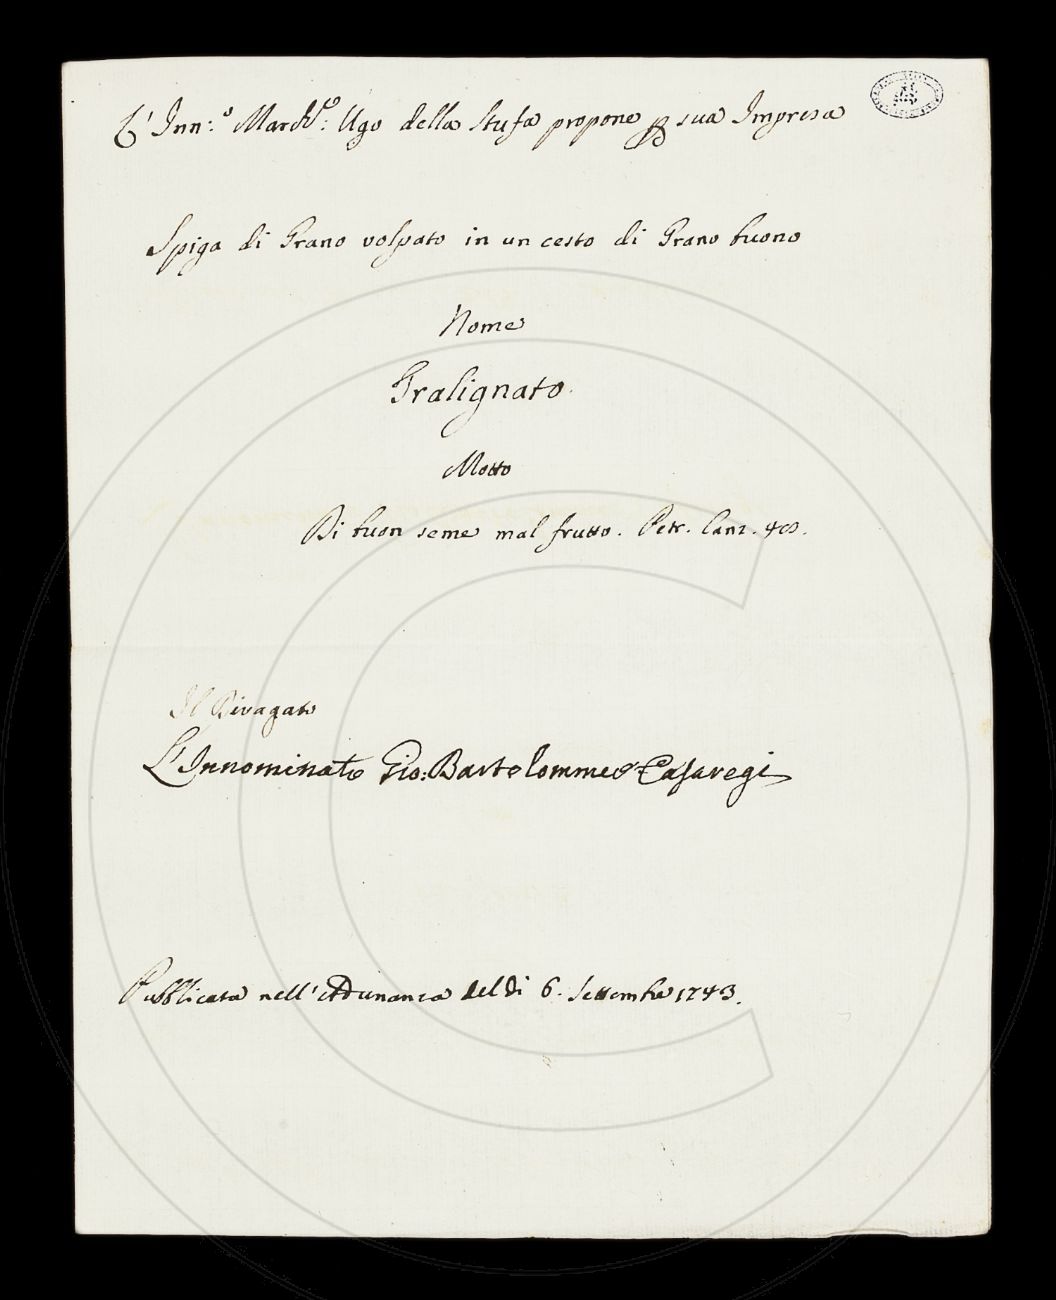 L' Inn:º March:º Ugo della Stufa propone p sua Impresa
Spiga di Grano volpato in un cesto di Grano buono
Nome
Tralignato.
Motto
Di buon seme mal frutto. Petr. Canz. 48.
Il Divagato
L'Innominato Gio: Bartolommeo Casaregi
Pubblicata nell'Adunanza del di 6. Settembre 1743.